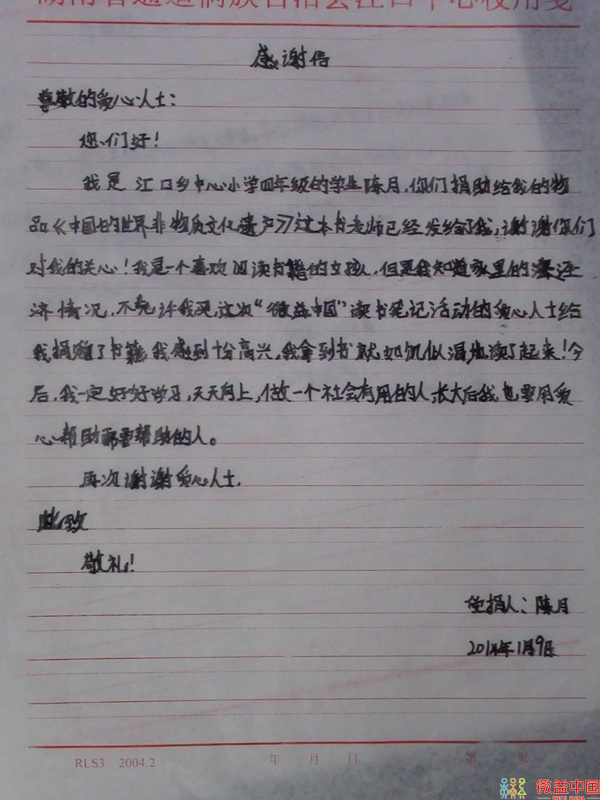 湖南省通道侗族自治县江口中心校用笺
感谢信
尊敬的爱心人士：
您们好！
我是江口乡中心小学四年级的学生陈月，你们捐助给我的物
品《中国的世界非物质文化遗产》这本书老师已经发给了我，谢谢你们
对我的关心！我是一个喜欢阅读书籍的女孩，但是我知道家里的
济情况，不允许我买，这次“微益中国”读书笔记活动的爱心人士给
我捐赠了书籍我感到十分高兴，我拿到书就如饥似渴地读了起来！今
后，我一定好好学习，天天向上，做一个社会有用的人长大后我也要用爱
心帮助需要帮助的人。
再次谢谢爱心人士，
此致
敬礼！
受捐人：陈月
2014年1月9日
RLS3 2004.2 年 月 日 第 页
微益中国